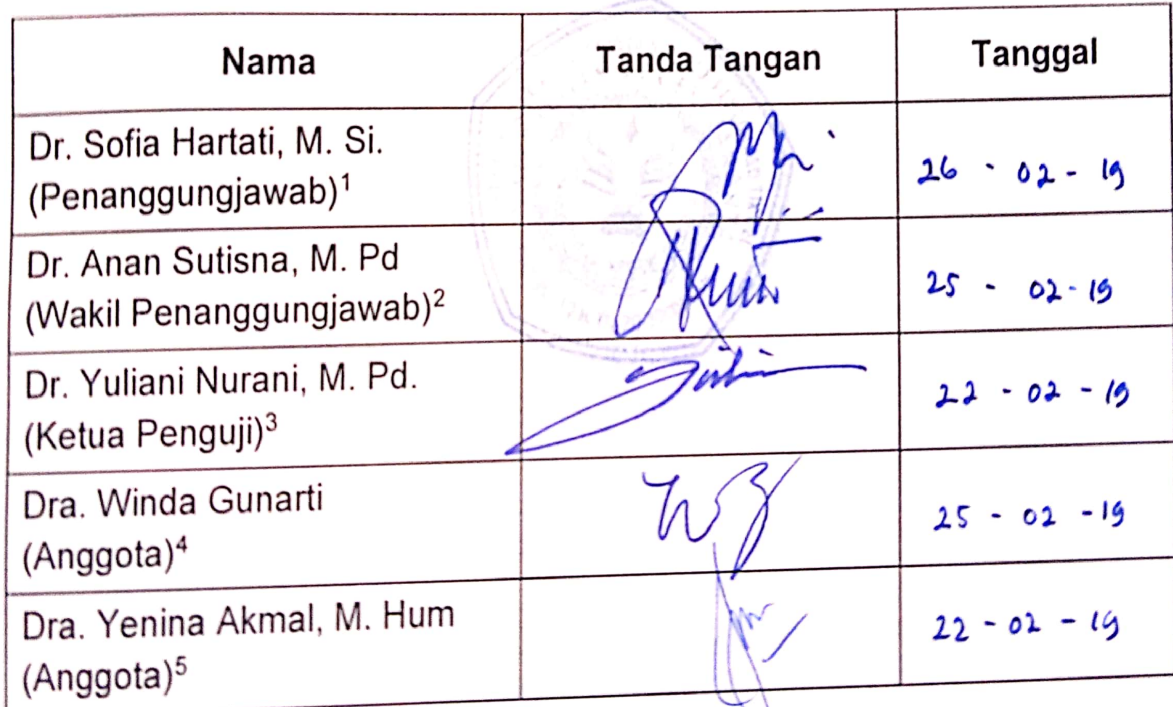 Nama Tanda Tangan Tanggal
Dr. Sofia Hartati, M. Si.
(Penanggungjawab)¹ 26 - 02 - 19
Dr. Anan Sutisna, M. Pd
(Wakil Penanggungjawab)² 25 - 02 - 19
Dr. Yuliani Nurani, M. Pd.
(Ketua Penguji)³ 22 - 02 - 19
Dra. Winda Gunarti
(Anggota)⁴ 25 - 02 - 19
Dra. Yenina Akmal, M. Hum
(Anggota)⁵ 22 - 02 - 19